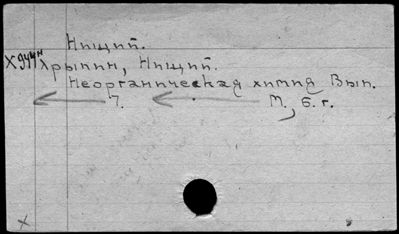 Нищий.
Хрыпин, Нищий.
Неорганическая химия Вып.
7. М., б.г.